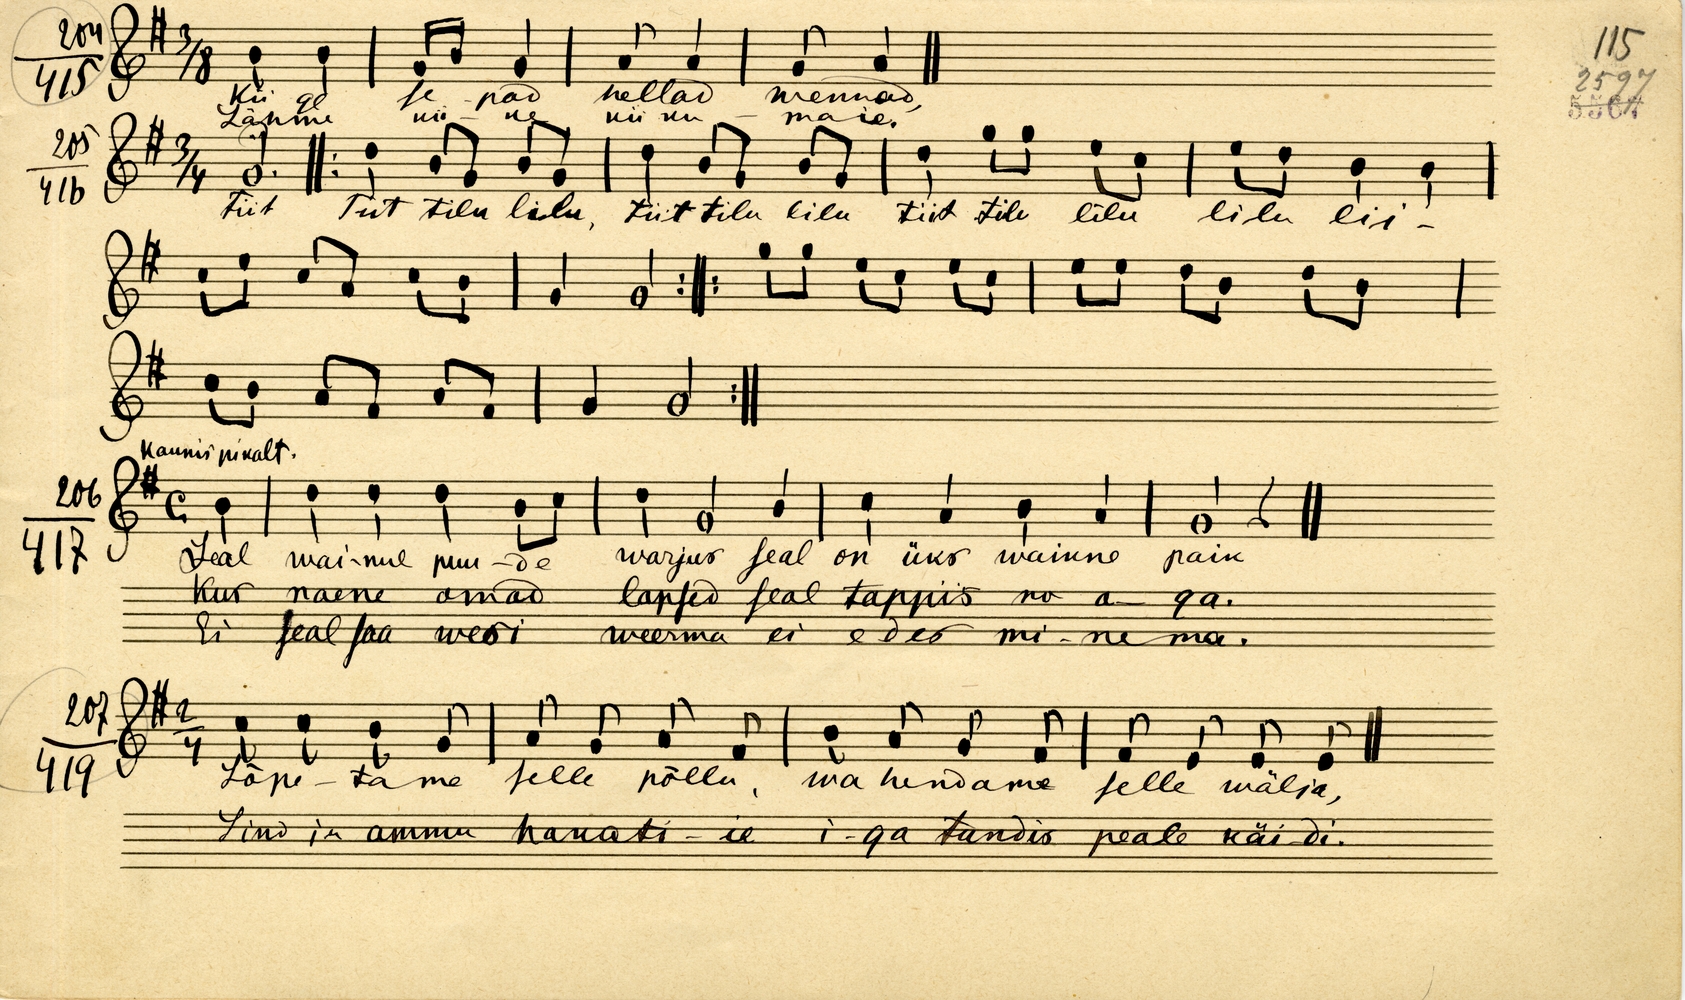 115
2597
204
415
3/8
Kii ge se - pad hellad wennad,
Lähme nii - ne nii nu - maie.
205
416
3/4
Tiit Tiit tilu lilu, tiit tilu lilu tiit tilu lilu lilu lii -
Kaunis pikalt.
206
417
C
Seal wai-nul puu-de warjus seal on üks waikne paik
Kus naene omad lapsed seal tappis no a- ga.
Ei seal saa wesi weerma ei edes mi-ne ma.
207
419
2/4
Lõpe-ta me selle põllu, wa hendame selle wälja,
Sind ju ammu hanati-ie i-ga tundis peale käi-di.